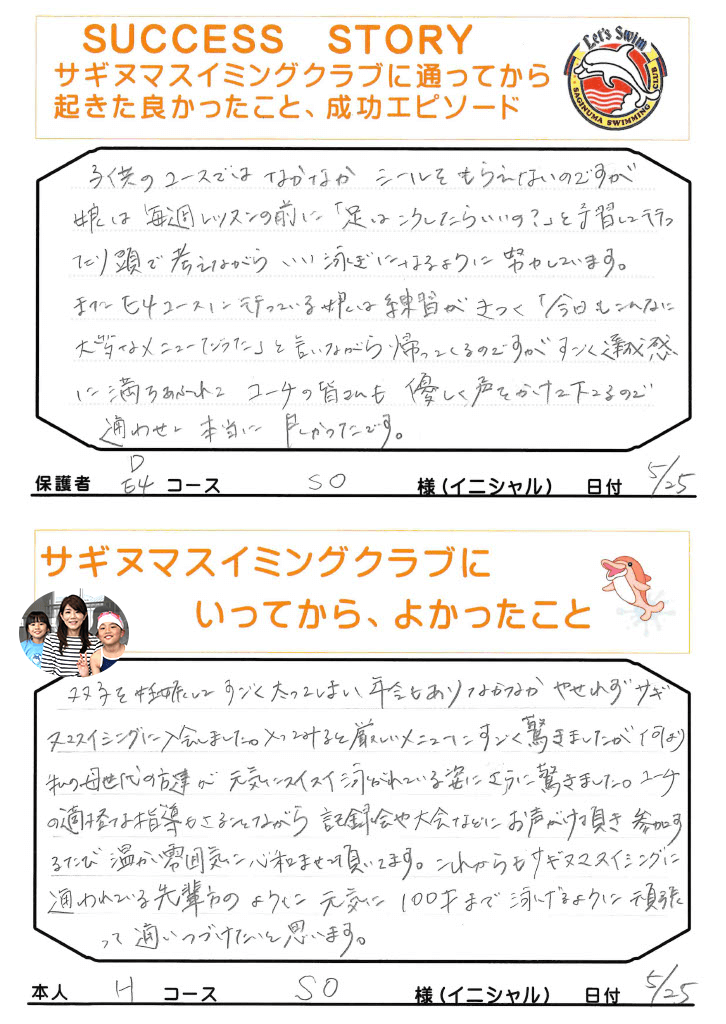 SUCCESS STORY
Let's Swim
SAGINUMA SWIMMING CLUB
サギヌマスイミングクラブに通ってから
起きた良かったこと、成功エピソード
子供のコースでは なかなか シールを もらえないのですが
娘は 毎週レッスンの前に「足は こうしたらいいの?」と予習して行っ
たり頭で 考えながら いい 泳ぎになるように 努力しています。
またE4コースに行っている娘は 練習が きつく「今日もこんなに
大変なメニューだった」と言いながら帰ってくるのですがすごく達成感
に満ちあふれて コーチの皆さんも 優しく声をかけて下さるので
通わせて 本当に 良かったです。
保護者 D E4 コース SO 様(イニシャル) 日付 5/25
サギヌマスイミングクラブに
いってから、よかったこと
双子を妊娠して すごく太ってしまい 年令もあり なかなか やせれず サギ
ヌマスイミングに入会しました。入ってみると厳しいメニューにすごく驚きましたが 何より
私の母世代の方達が 元気にスイスイ泳がれている姿に さらに驚きました。コーチ
の適格な指導もさることながら 記録会や大会などに お声がけ頂き 参加す
るたび 温かい雰囲気に心和ませて頂いてます。これからもサギヌマスイミングに
通われている先輩方の ように 元気に 100才まで 泳げるように 頑張
って 通いつづけたいと思います。
本人 H コース SO 様(イニシャル) 日付 5/25